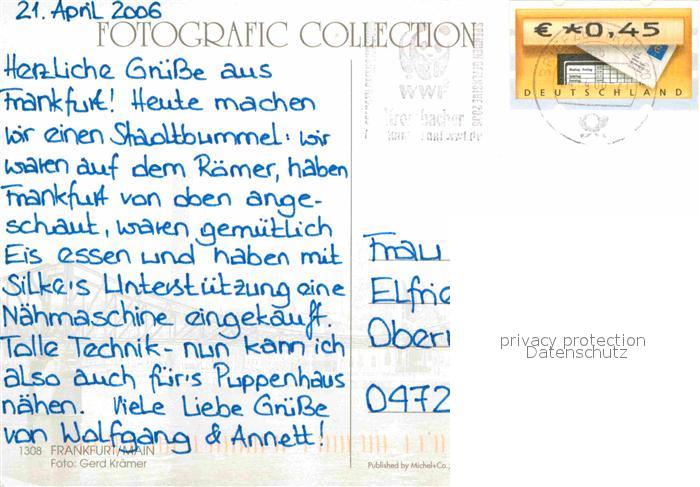 21. April 2006
FOTOGRAFIC COLLECTION
Herzliche Grüße aus
Frankfurt! Heute machen
wir einen Stadtbummel: wir
waren auf dem Römer, haben
Frankfurt von oben ange-
schaut, waren gemütlich
Eis essen und haben mit
Silke's Unterstützung eine
Nähmaschine eingekauft.
Tolle Technik - nun kann ich
also auch für's Puppenhaus
nähen. Viele Liebe Grüße
von Wolfgang & Annett!
1308 FRANKFURT/MAIN
Foto: Gerd Krämer
Published by Michel+Co.,
WWF
€ *0,45
DEUTSCHLAND
Frau
Elfrie
Ober
0472
privacy protection
Datenschutz